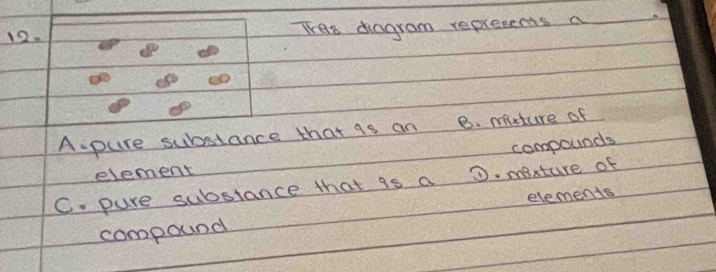 12. This diagram represents a ___.
A. pure substance that is an B. mixture of
element compounds
C. pure substance that is a D. mixture of
compound elements